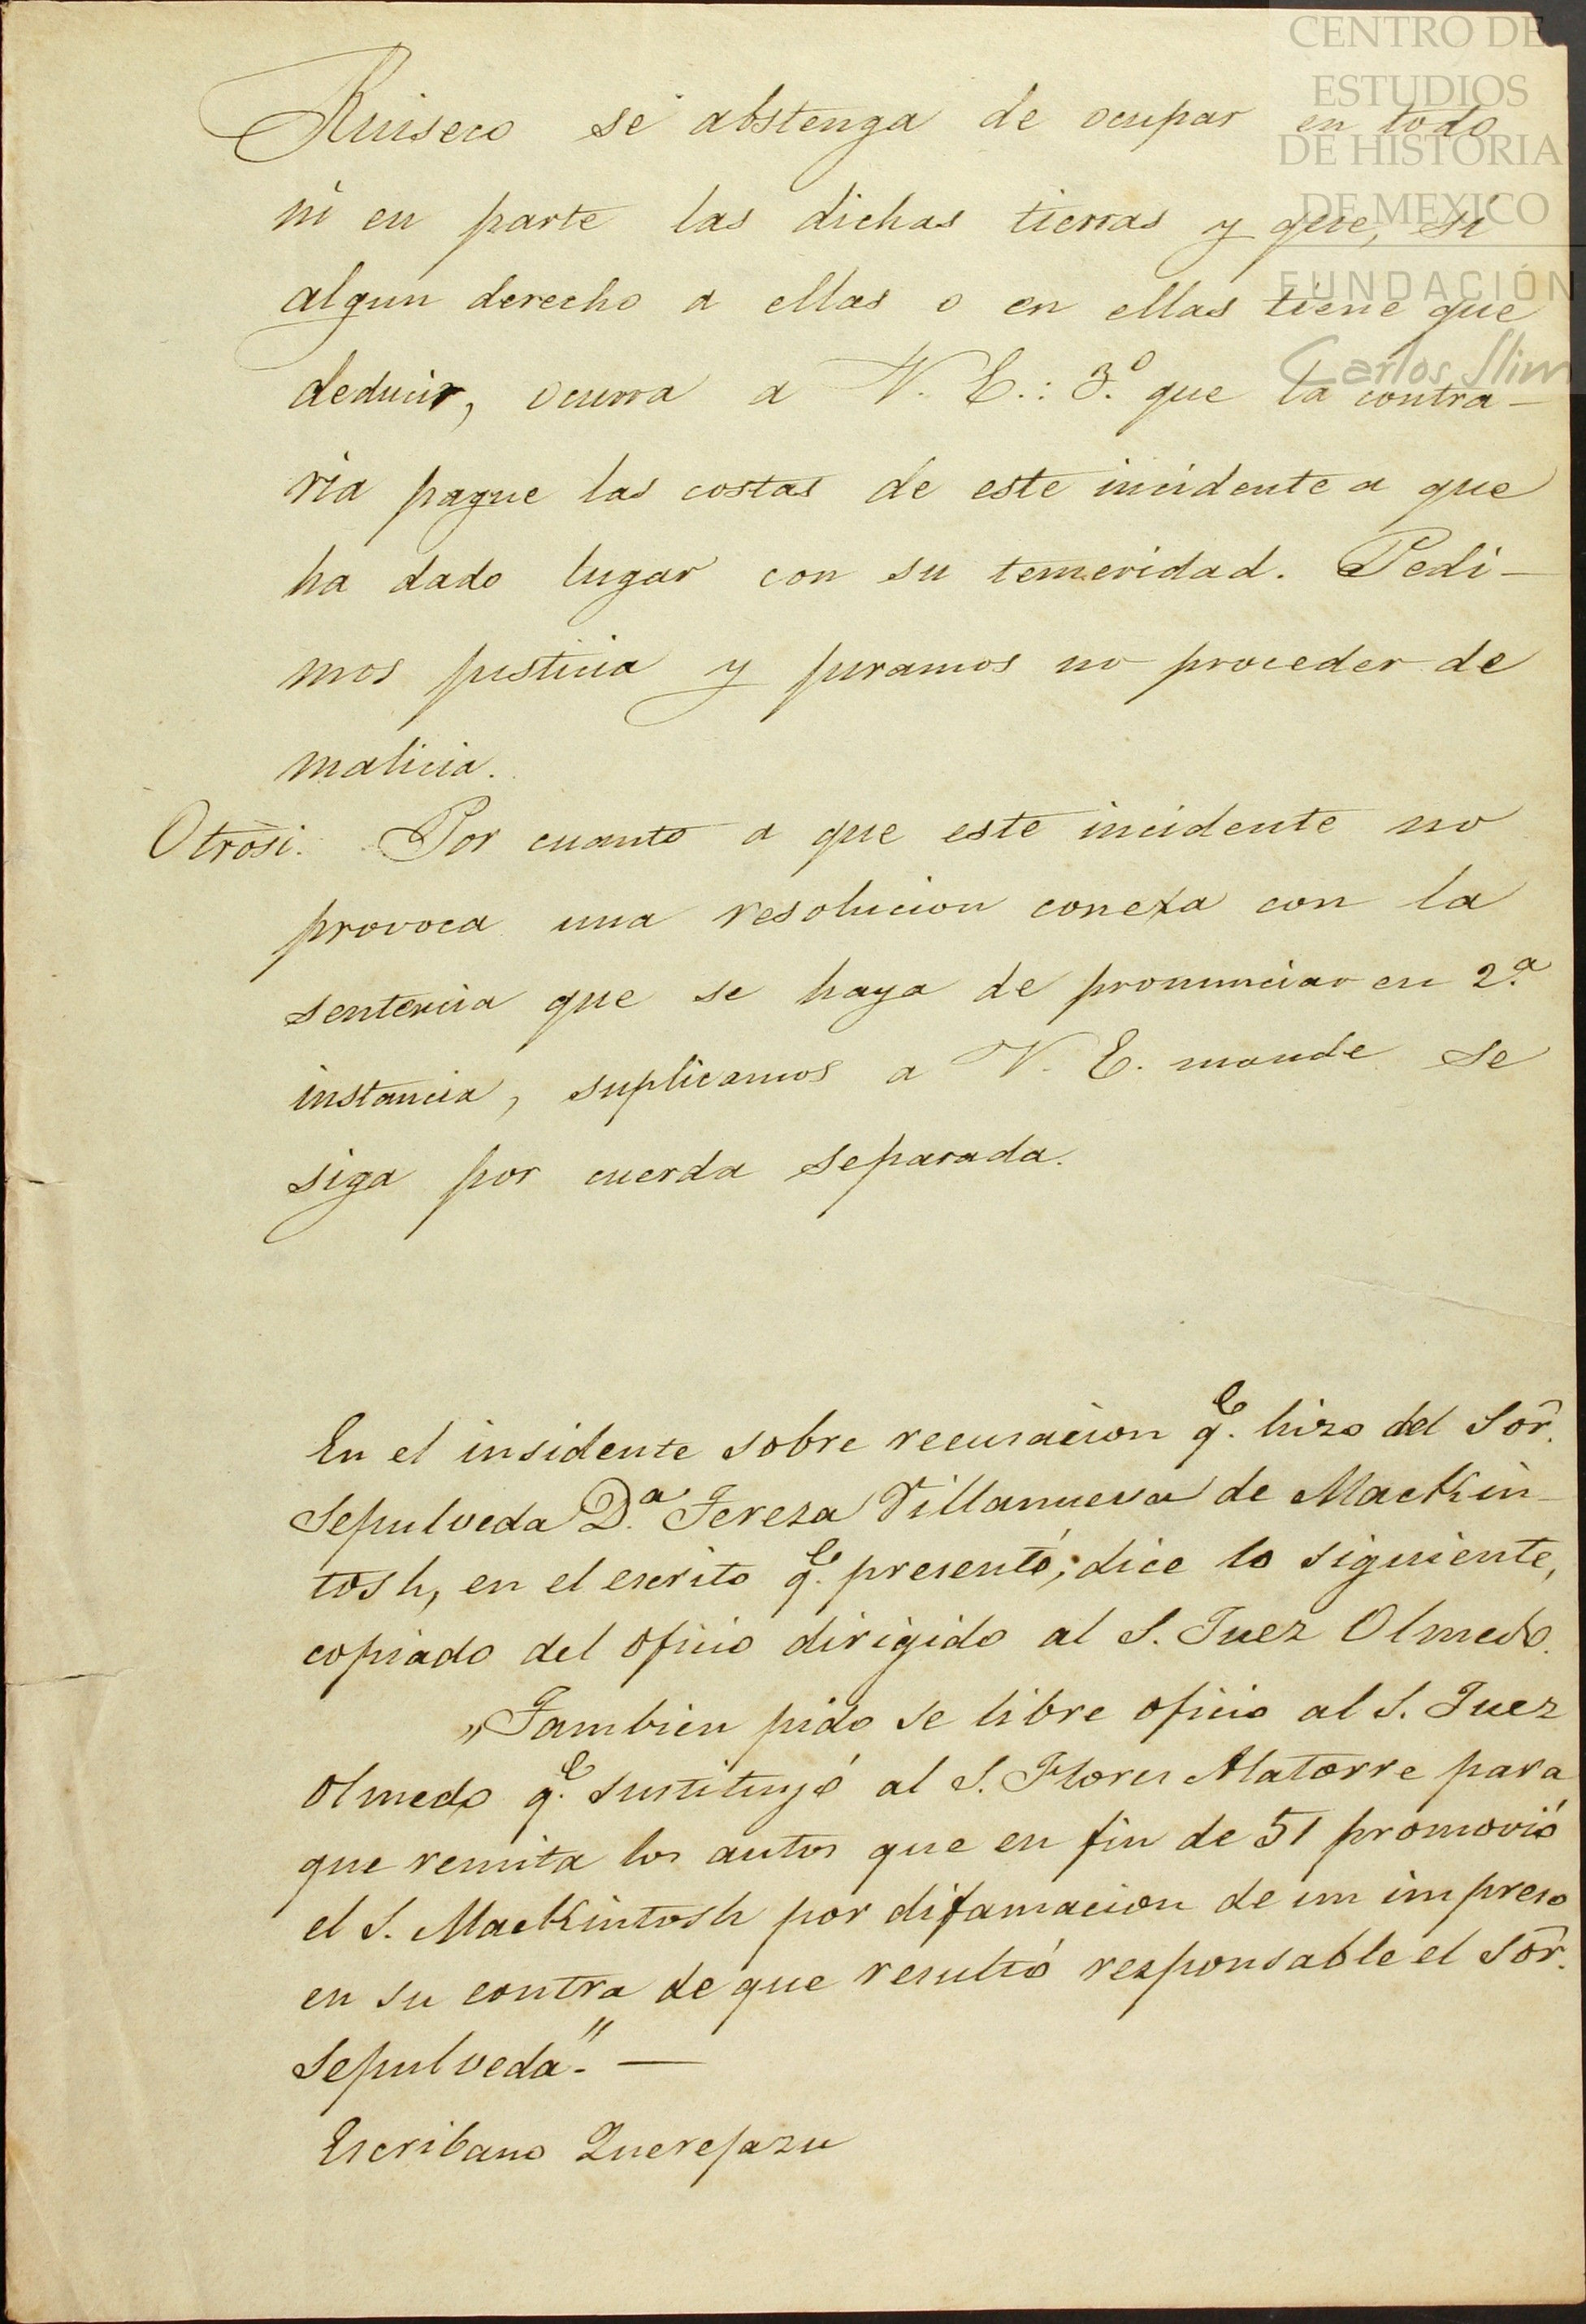 CENTRO DE
ESTUDIOS
DE HISTORIA
DE MEXICO
FUNDACIÓN
Carlos Slim
Ruiseco se abstenga de ocupar en todo
ni en parte las dichas tierras y que, si
algun derecho a ellas o en ellas tiene que
deducir, ocurra a V. E.: 3º que la contra-
ria pague las costas de este incidente a que
ha dado lugar con su temeridad. Pedi-
mos justicia y juramos no proceder de
malicia.
Otrosi. Por cuanto a que este incidente no
provoca una resolucion conexa con la
sentencia que se haya de pronunciar en 2.ª
instancia, suplicamos a V. E. mande se
siga por cuerda separada.
En el insidente sobre recusacion q.e hizo del Sor.
Sepulveda D.ª Tereza Villanueva de MacKin-
tosh, en el escrito q.e presentó, dice lo siguiente,
copiado del oficio dirigido al S. Juez Olmedo.
„Tambien pido se libre oficio al S. Juez
Olmedo q.e sustituyó al S. Flores Alatorre para
que remita los autos que en fin de 51 promovió
el S. MacKintosh por difamacion de un impreso
en su contra de que resultó responsable el Sor.
Sepulveda." —
Escribano Querejazu